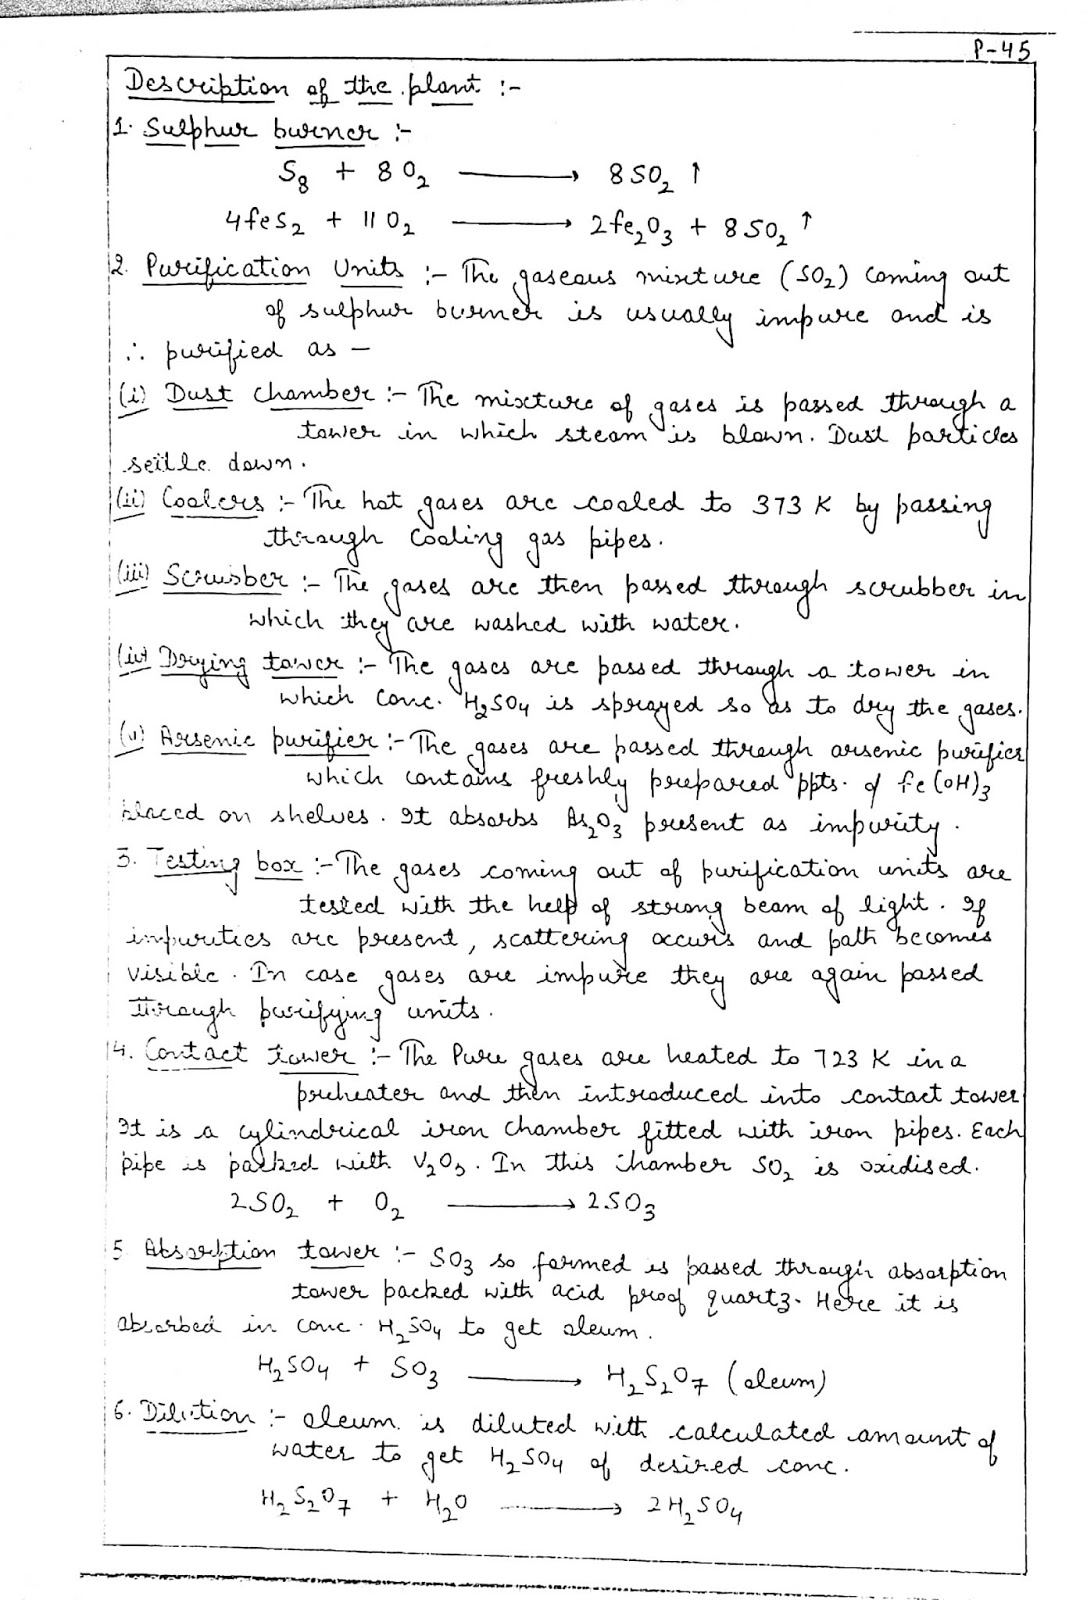 P-45
Description of the plant :-
1. Sulphur burner :-
S₈ + 8O₂ ⟶ 8SO₂ ↑
4feS₂ + 11O₂ ⟶ 2fe₂O₃ + 8SO₂ ↑
2. Purification Units :- The gaseous mixture (SO₂) coming out
of sulphur burner is usually impure and is
∴ purified as —
(i) Dust chamber :- The mixture of gases is passed through a
tower in which steam is blown. Dust particles
settle down.
(ii) Coolers :- The hot gases are cooled to 373 K by passing
through cooling gas pipes.
(iii) Scrubber :- The gases are then passed through scrubber in
which they are washed with water.
(iv) Drying tower :- The gases are passed through a tower in
which conc. H₂SO₄ is sprayed so as to dry the gases.
(v) Arsenic purifier :- The gases are passed through arsenic purifier
which contains freshly prepared ppts. of fe(OH)₃
placed on shelves. It absorbs As₂O₃ present as impurity.
3. Testing box :- The gases coming out of purification units are
tested with the help of strong beam of light. If
impurities are present, scattering occurs and path becomes
visible. In case gases are impure they are again passed
through purifying units.
4. Contact tower :- The Pure gases are heated to 723 K in a
preheater and then introduced into contact tower
It is a cylindrical iron chamber fitted with iron pipes. Each
pipe is packed with V₂O₅. In this chamber SO₂ is oxidised.
2SO₂ + O₂ ⟶ 2SO₃
5. Absorption tower :- SO₃ so formed is passed through absorption
tower packed with acid proof quartz. Here it is
absorbed in conc. H₂SO₄ to get oleum.
H₂SO₄ + SO₃ ⟶ H₂S₂O₇ (oleum)
6. Dilution :- oleum is diluted with calculated amount of
water to get H₂SO₄ of desired conc.
H₂S₂O₇ + H₂O ⟶ 2H₂SO₄